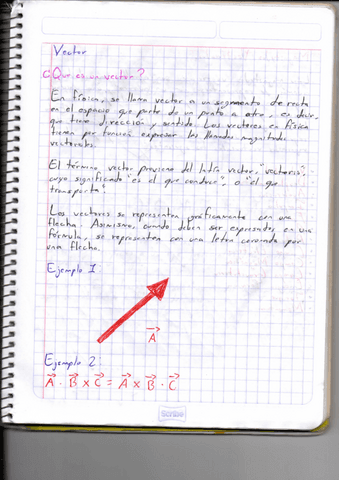 Vector
¿Que es un vector?
En física, se llama vector a un segmento de recta
en el espacio que parte de un punto a otro, es decir,
que tiene dirección y sentido. Los vectores en física
tienen por función expresar las llamadas magnitudes
vectoriales.
El término vector proviene del latín vector, "vectoris",
cuyo significado "es el que conduce", o "el que
transporta".
Los vectores se representan gráficamente con una
flecha. Asimismo, cuando deben ser expresados en una
fórmula, se representan con una letra coronada por
una flecha.
Ejemplo 1:
A→
Ejemplo 2:
A→ · B→ x C→ = A→ x B→ · C→
Scribe